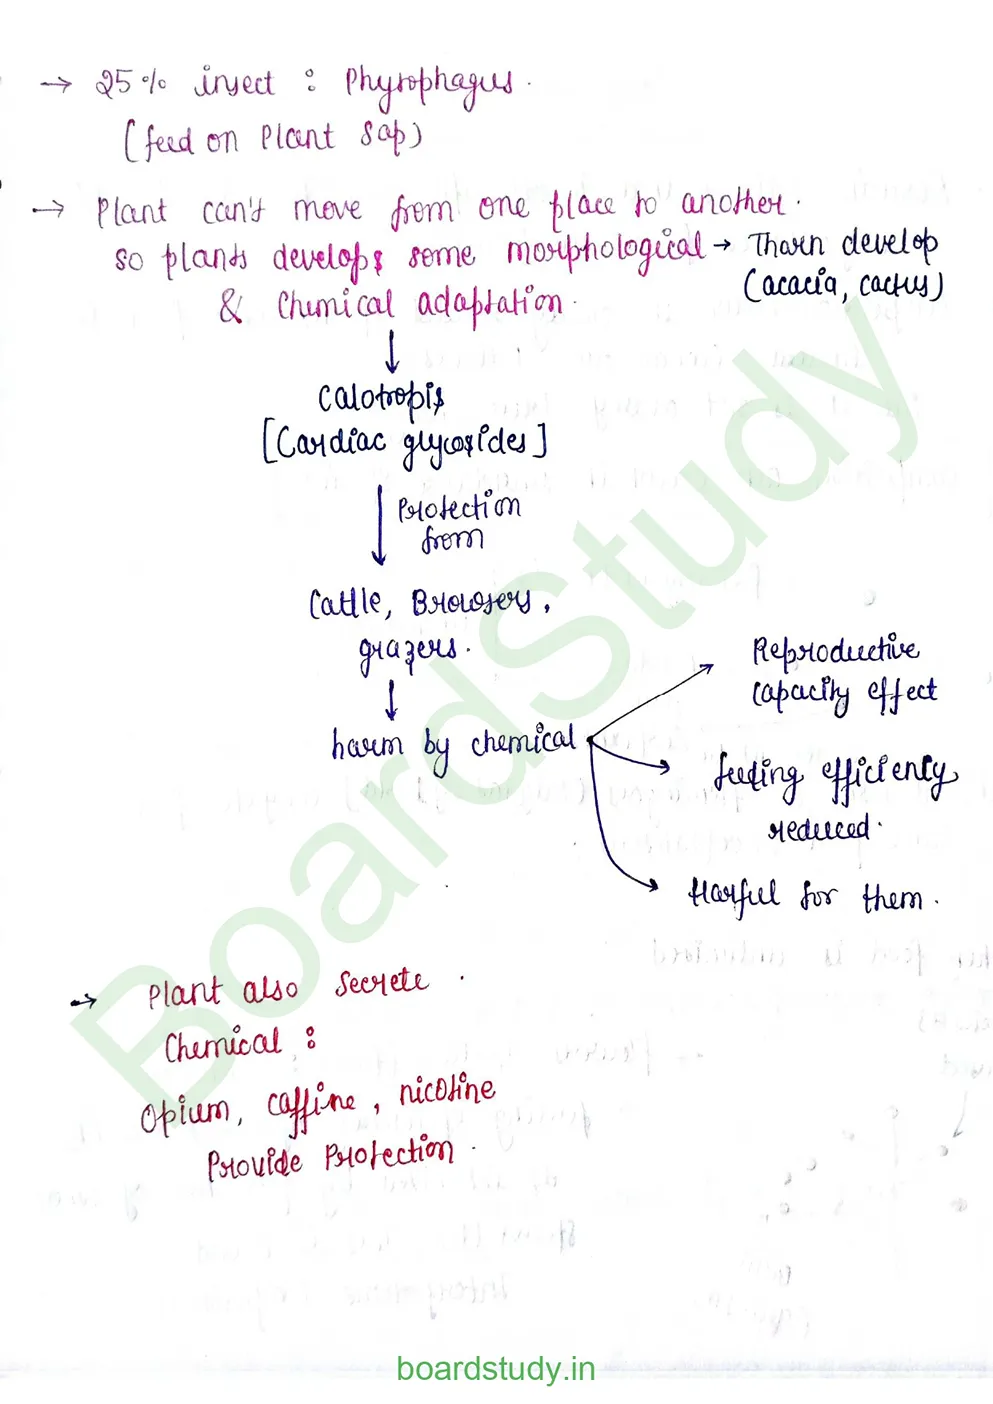 → 25% insect : Phytophagus.
(feed on Plant sap)
→ Plant can't move from one place to another.
so plants develops some morphological → Tharn develop
(acacia, cactus)
& Chemical adaptation.
↓
Calotropis
[Cardiac glycosides]
↓ Protection
from
Cattle, Browsers,
grazers.
↓
harm by chemical
Reproductive
capacity effect
feeding efficiency
reduced.
Harful for them.
→ Plant also secrete
Chemical :
Opium, caffine, nicotine
Provide Protection.
BoardStudy
boardstudy.in